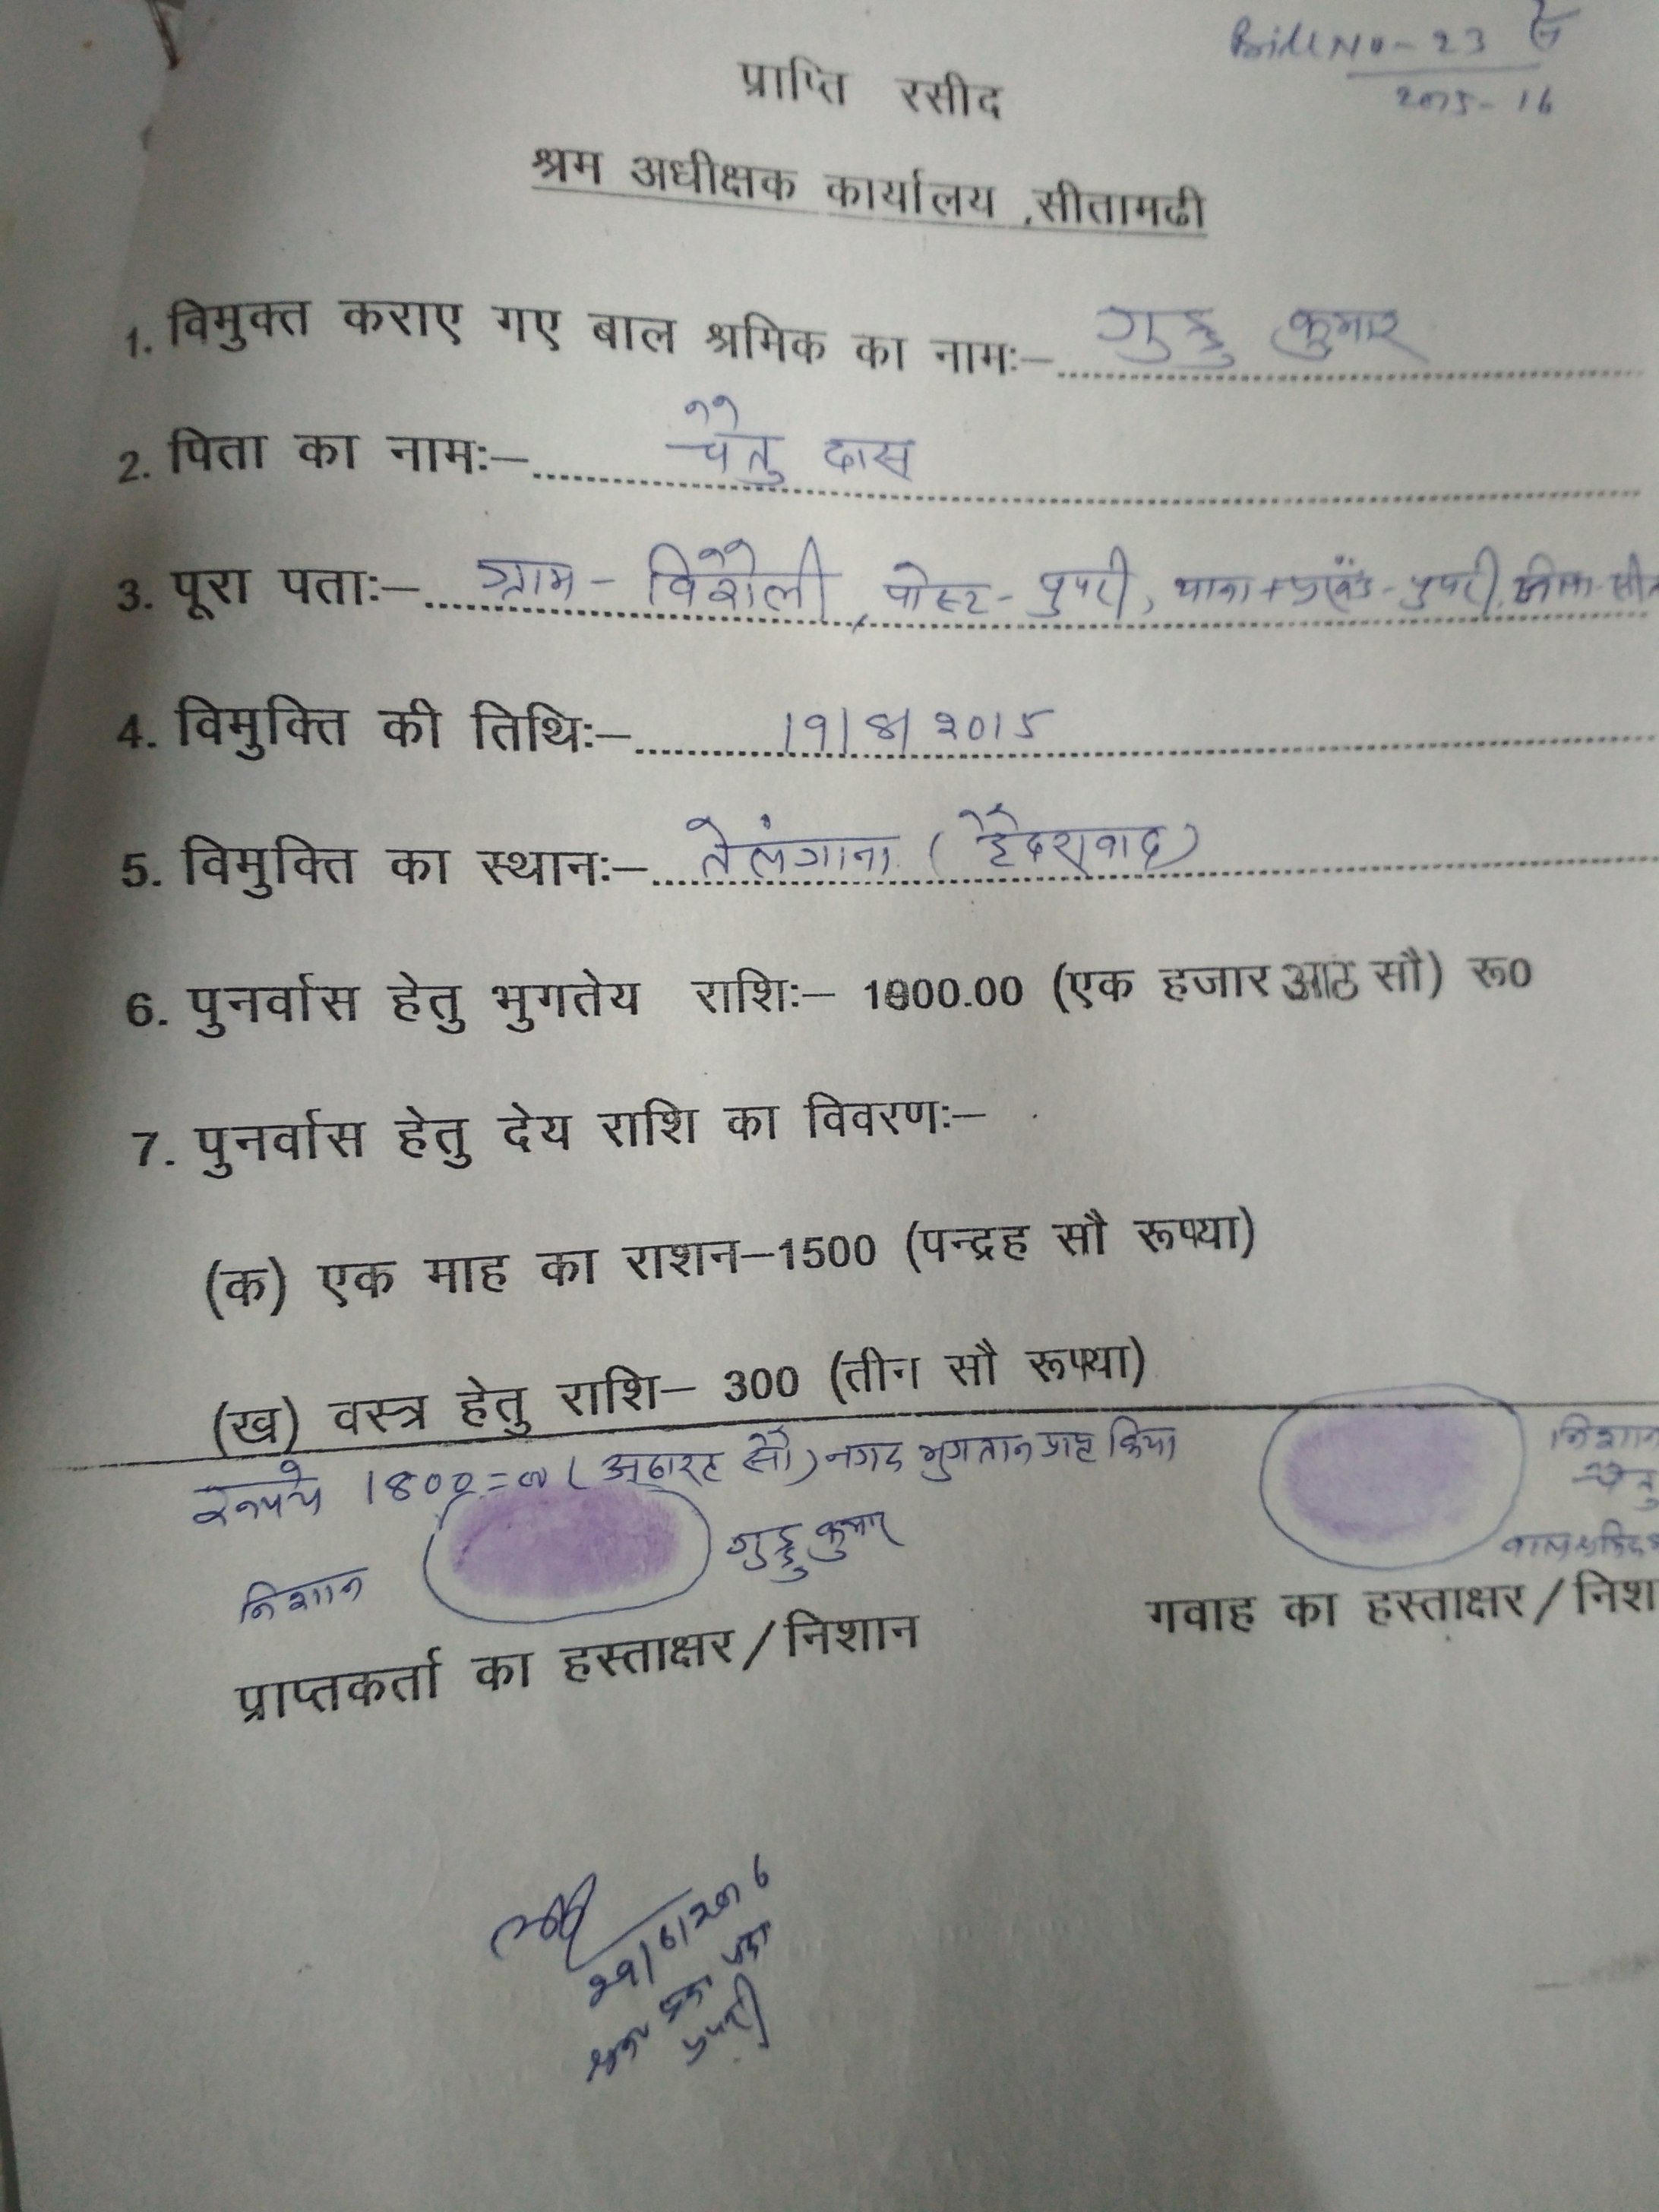 Bill No - 23
2015-16
प्राप्ति रसीद
श्रम अधीक्षक कार्यालय ,सीतामढी
1. विमुक्त कराए गए बाल श्रमिक का नामः– गुड्डु कुमार
2. पिता का नामः– चैतु दास
3. पूरा पताः– ग्राम - विरौली, पोस्ट - पुपरी, थाना + प्रखंड - पुपरी, जिला-
4. विमुक्ति की तिथिः– 19/8/2015
5. विमुक्ति का स्थानः– तेलंगाना (हैदरावाद)
6. पुनर्वास हेतु भुगतेय राशिः– 1800.00 (एक हजार आठ सौ) रू0
7. पुनर्वास हेतु देय राशि का विवरणः–
(क) एक माह का राशन–1500 (पन्द्रह सौ रूपया)
(ख) वस्त्र हेतु राशि– 300 (तीन सौ रूपया)
रूपये 1800=00 (अठारह सौ) नगद भुगतान प्राप्त किया
निशान गुड्डु कुमार
निशान
चैतु
प्राप्तकर्ता का हस्ताक्षर/निशान
गवाह का हस्ताक्षर/निश
29/6/2016
पुपरी